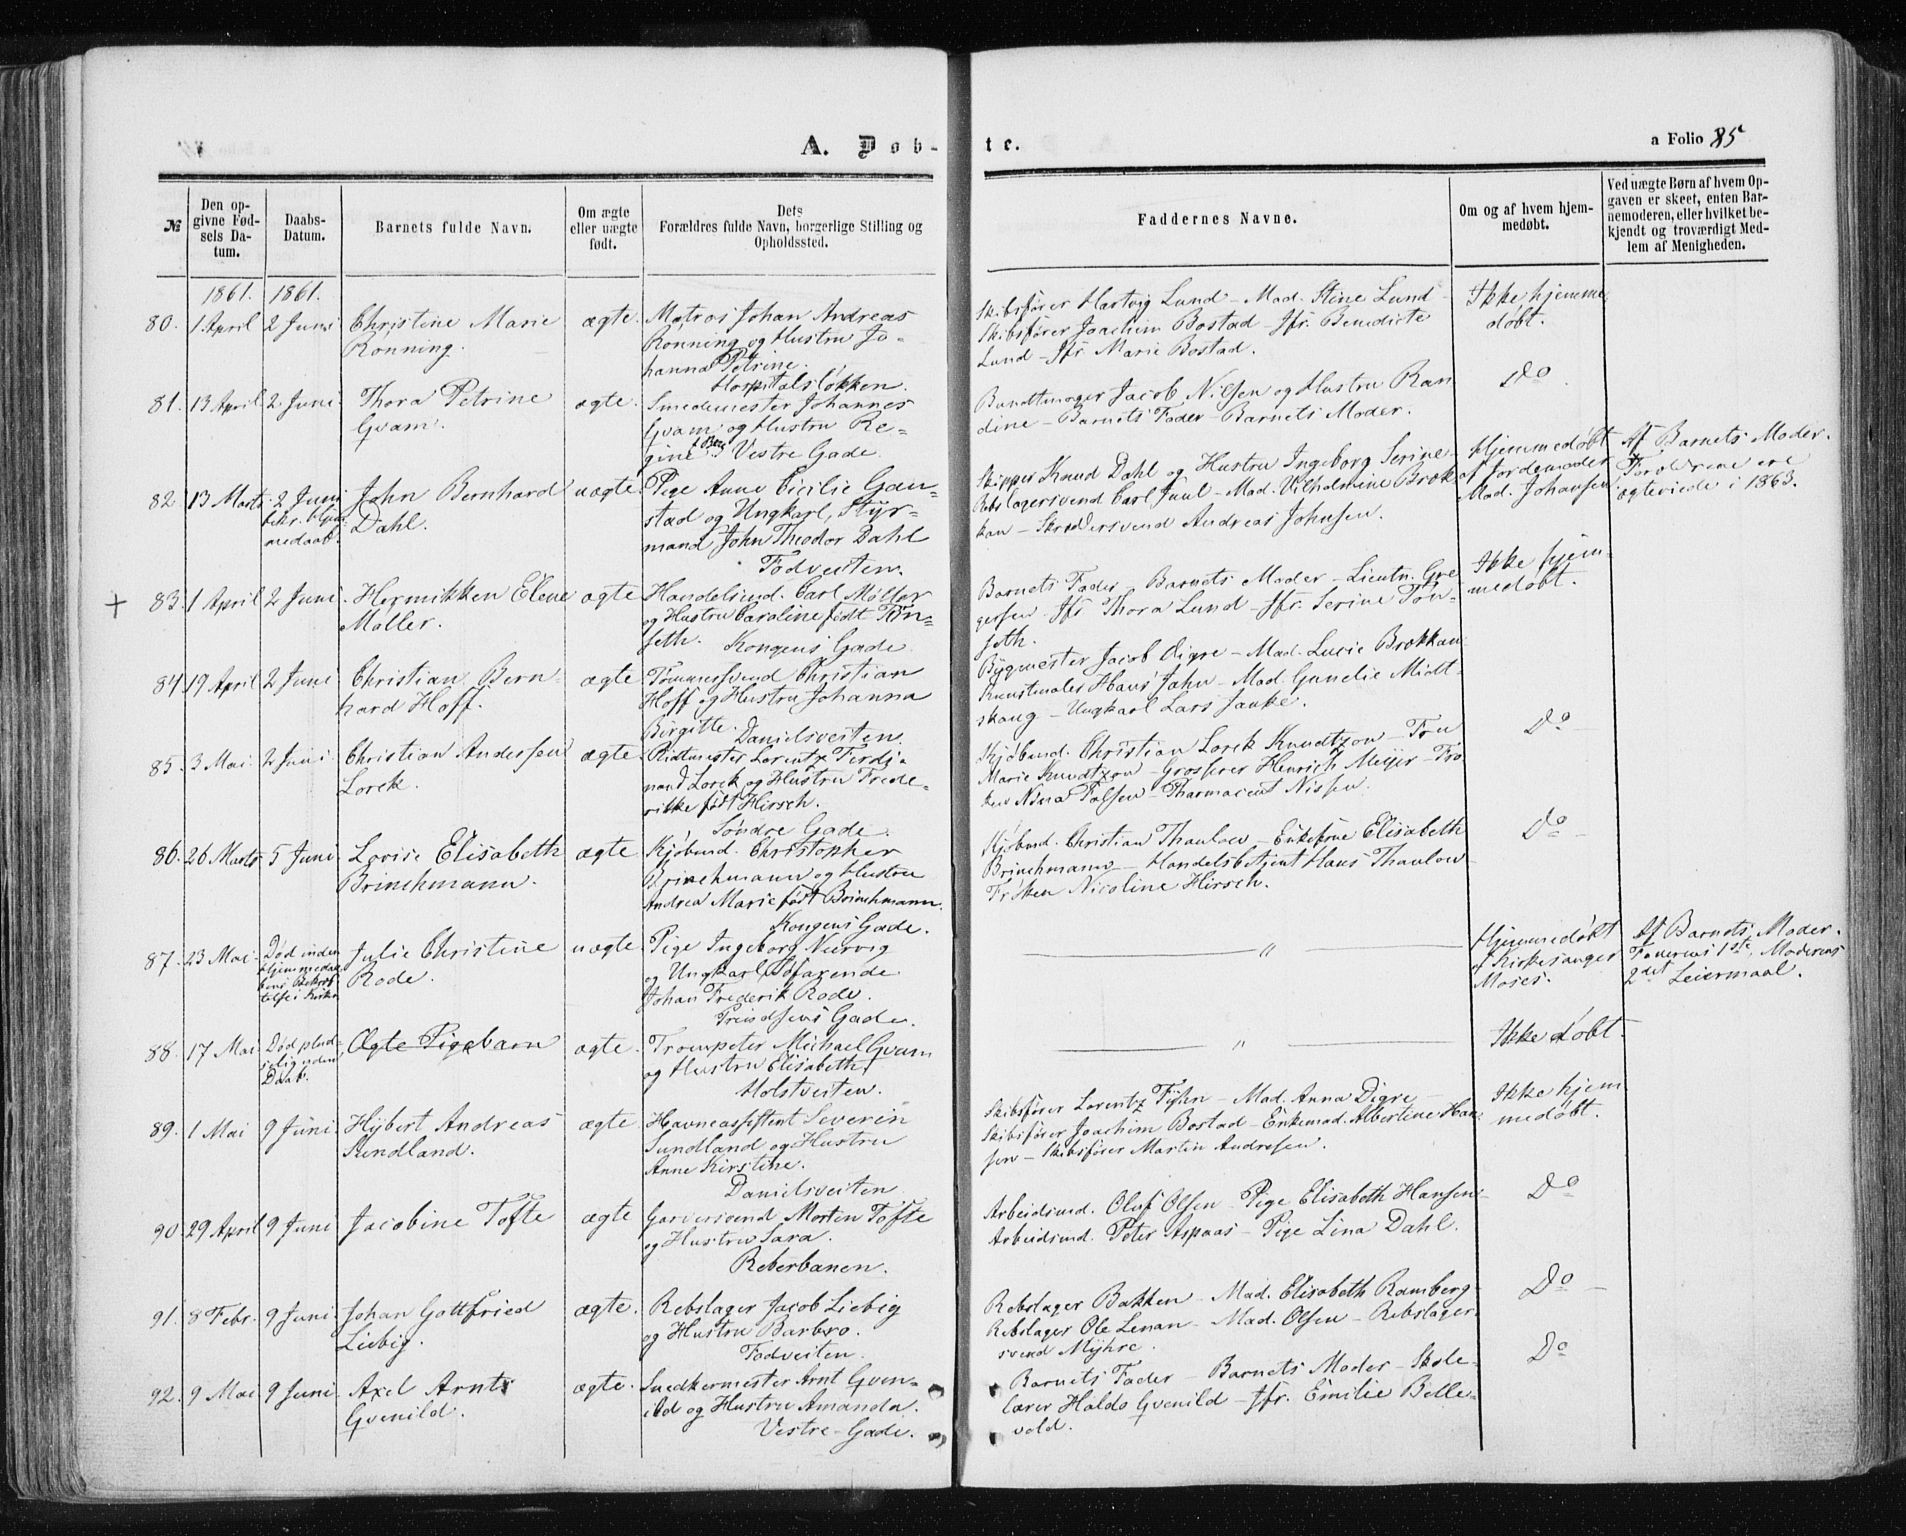 A. Døb-
te.
a Folio 85
№
Den op-
givne Fød-
sels Da-
tum.
Daabs-
Datum.
Barnets fulde Navn.
Om ægte
eller uægte
født.
Dets
Forældres fulde Navn, borgerlige Stilling og
Opholdssted.
Faddernes Navne.
Om og af hvem hjem-
medøbt.
Ved uægte Børn af hvem Op-
gaven er skeet, enten Bar-
nemoderen, eller hvilket be-
kjendt og troværdigt Med-
lem af Menigheden.
1861. 1861.
80. 1 April 2 Juni Christine Marie
Rønning.
ægte.
Matros Johan Andreas
Rønning og Hustru Jo-
hanna Petrine.
Hospitalsløkken.
Skibsfører Hartvig Lund - Mad. Stine Lund -
Skibsfører Joachim Bostad - Jfr. Benedicte
Lund - Jfr. Marie Bostad.
Ikke hjemme
døbt.
81. 13 April 2 Juni Thora Petrine
Gvam.
ægte.
Smedemester Johannes
Gvam og Hustru Re-
gine Vestre Gade.
Bundtmager Jacob Nilsen og Hustru Ran
dine - Barnets Fader - Barnets Moder.
Do
82. 13 Marts 2 Juni
bekr. hjem
medaab.
John Bernhard
Dahl.
uægte.
Pige Anne Cicilie Gau-
stad og Ungkarl, Styr-
mand John Theodor Dahl
Fodveiten.
Skipper Knud Dahl og Hustru Ingeborg Serine -
Rebslagersvend Carl Juul - Mad. Vilhelmine Brok
kan - Skræddersvend Andreas Johnsen.
Hjemmedøbt
af Jordemoder
Mad. Johansen.
Af Barnets Moder.
Forældrene ere
ægteviede i 1863.
83. 1 April 2 Juni. Hermikken Elene
Møller.
ægte.
Handelsmd. Carl Møller
og Hustru Caroline født Tøn-
seth. Kongens Gade
Barnets Fader - Barnets Moder - Lieutn. Gre
gersen - Jfr. Thora Lund - Jfr. Serine Tøn-
seth.
Ikke hjem-
medøbt.
84. 19 April 2 Juni Christian Bern
hard Hoff.
ægte
Tømmersvend Christian
Hoff og Hustru Johanna
Birgitte. Danielsveiten
Bygmester Jacob Digre - Mad. Lucie Brokkan
Kunstmaler Hans Jahn - Mad. Gunelie Midt-
skaug - Ungkarl Lars Janke.
Do
85. 3 Mai 2 Juni Christian Andersen
Lorck.
ægte
Ridtmester Lorentz Ferdi-
nand Lorck og Hustru Frede-
rikke født Hirsch.
Søndre Gade.
Kjøbmd. Christian Lorck Knudtzon - Fru
Marie Knudtzon - Grosserer Henrich Meyer - Frø
ken Nina Falsen - Pharmaceut Nissen.
86. 26 Marts 5 Juni Lovise Elisabeth
Brinchmann.
ægte
Kjøbmd. Christopher
Brinchmann og Hustru
Andrea Marie født Brinchmann.
Kongens Gade.
Kjøbmd. Christian Thaulow - Enkefrue Elisabeth
Brinchmann - Handelsbetjent Hans Thaulow
Frøken Nicoline Hirsch.
Do
87. 23 Mai Død inden
Hjemmedaa-
bens Bekræf
telse i Kirken
Julie Christine
Rode.
uægte
Pige Ingeborg Nervig
og Ungkarl Søfarende
Johan Frederik Rode.
Gade.
"
Hjemmedøbt
af Kirkesanger
Moses.
Af Barnets Moder.
Faderens 1ste, Moderens
2det Leiermaal.
88. 17 Mai Død plud-
selig uden
Daab.
Ægte Pigebarn
ægte.
Trompeter Michael Gvam
og Hustru Elisabeth
Holstveiten.
"
Ikke døbt.
89. 1 Mai 9 Juni Hybert Andreas
Sundland.
ægte
Havneassistent Severin
Sundland og Hustru
Anne Kirstine.
Danielsveiten.
Skibsfører Lorentz Fyhn - Mad. Anna Digre -
Skibsfører Joachim Bostad - Enkemad. Albertine Han-
sen - Skibsfører Martin Andresen.
Ikke hjem
medøbt.
90. 29 April 9 Juni Jacobine Tofte
ægte
Garversvend Morten Tofte
og Hustru Sara.
Reberbanen.
Arbeidsmd. Oluf Olsen - Pige Elisabeth Hansen -
Arbeidsmd. Peter Aspaas - Pige Lina Dahl.
Do
91. 8 Febr. 9 Juni Johan Gottfried
Liebig.
ægte.
Rebslager Jacob Liebig
og Hustru Barbro.
Fodveiten.
Rebslager Bakken - Mad. Elisabeth Ramberg -
Rebslager Ole Lenan - Mad. Olsen - Rebslager-
svend Myhre.
Do
92. 9 Mai 9 Juni Axel Arnt
Gvenild.
ægte.
Snedkermester Arnt Gven-
ild og Hustru Amanda.
Vestre Gade.
Barnets Fader - Barnets Moder - Skole-
lærer Haldo Gvenild - Jfr. Emilie Belle-
vold.
Do